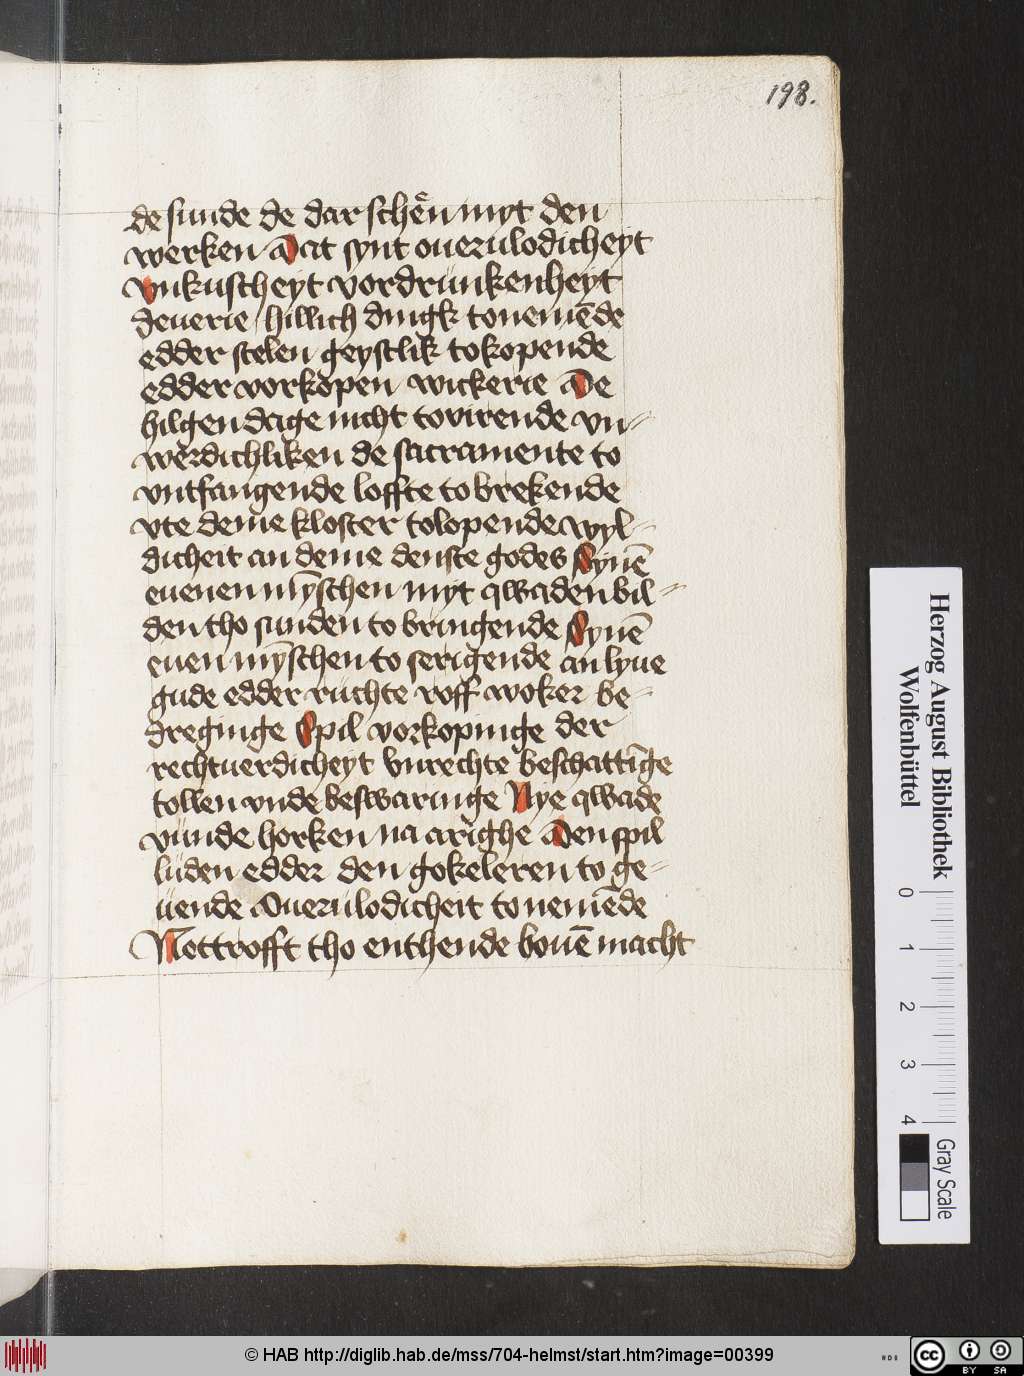 198.
de sunde de dar schēn myt den
werken Dat synt ouerulodicheyt
vnkuscheyt vordrunkenheyt
deuerie hillich dingk to nemēde
edder stelen geystlik to kopende
edder vorkopen wickerie De
hilgen dage nicht to virende vn-
werdichliken de sacramente to
vntfangende loffte to brekende
vte deme kloster to lopende wyl-
dicheit an deme denste godes Synē
euenen mȳschen myt qwaden bil-
den tho sunden to bringende Synē
euen mȳschen to serigende an lyue
gude edder ruchte roff woker be-
dreginge Spil vorkopinge der
rechtuerdicheyt vnrechte beschattīge
tollen vnde beswaringe Nye qwade
vunde horken na arighe Den spil
luden edder den gokeleren to ge-
uende Ouerulodicheit to nemēde
Nottrofft tho enthende bouē macht
Herzog August Bibliothek
Wolfenbüttel
0 1 2 3 4
Gray Scale
© HAB http://diglib.hab.de/mss/704-helmst/start.htm?image=00399
cc BY SA